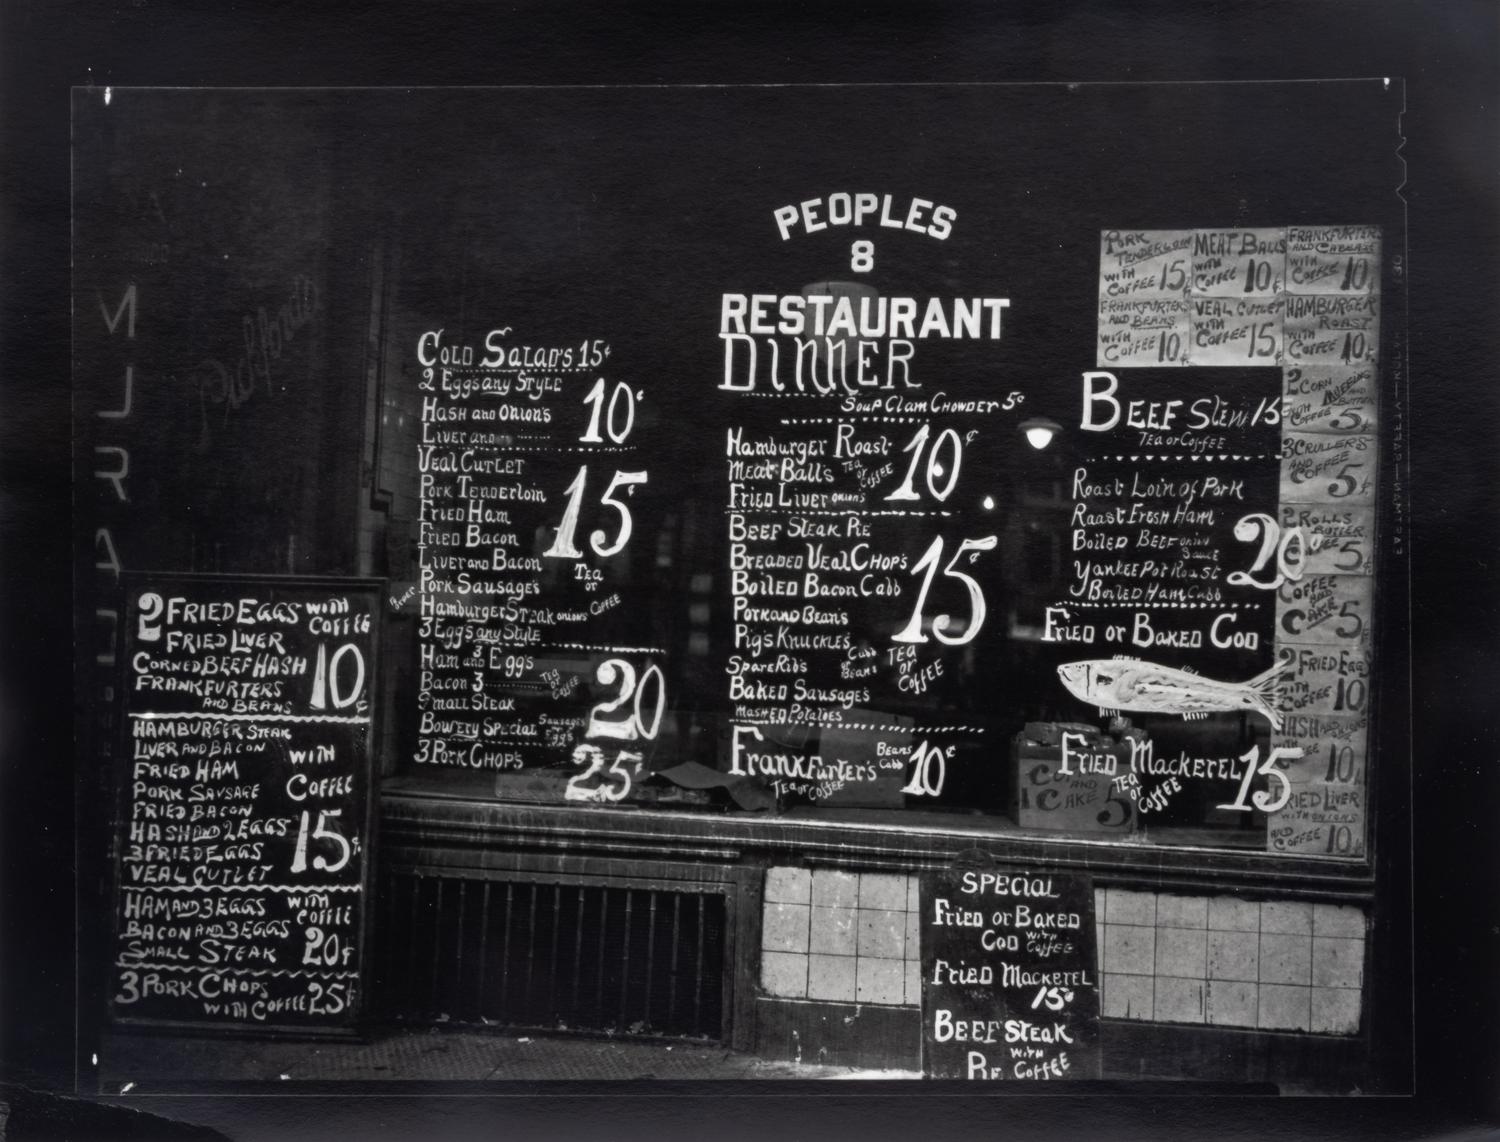 PEOPLES
8
RESTAURANT
DINNER
SOUP CLAM CHOWDER 5¢
Hamburger Roast
Meat Ball's TEA or COFFEE 10¢
Fried Liver onion's
BEEF STEAK PIE
BREADED VEAL CHOP'S
BOILED BACON Cabb 15¢
PORK and BEAN'S
PIG'S KNUCKLES Cabb
SPARE RIB'S or Beans
BAKED SAUSAGE'S
MASHED POTATOES
TEA or COFFEE
FRANKFURTER'S Beans Cabb 10¢
TEA or COFFEE
COLD SALAD'S 15¢
2 Eggs any STYLE
HASH and ONION'S 10¢
LIVER and
VEAL CUTLET
PORK TENDERLOIN
FRIED HAM 15¢
FRIED BACON
LIVER and BACON
PORK SAUSAGE'S
HAMBURGER STEAK onions
3 Egg's any Style
TEA or COFFEE
HAM and 3 EGG'S
BACON 3 TEA or COFFEE
SMALL STEAK 20
BOWERY SPECIAL Sausages
3 PORK CHOP'S 25¢
2 FRIED EGGS WITH COFFEE
FRIED LIVER
CORNED BEEF HASH 10¢
FRANKFURTERS
AND BEANS
HAMBURGER STEAK
LIVER AND BACON WITH
FRIED HAM
PORK SAUSAGE COFFEE
FRIED BACON
HASH AND 2 EGGS 15¢
3 FRIED EGGS
VEAL CUTLET
HAM AND 3 EGGS WITH
BACON AND 3 EGGS COFFEE
SMALL STEAK 20¢
3 PORK CHOPS
WITH COFFEE 25¢
PORK TENDERLOIN WITH COFFEE 15¢
MEAT BALLS WITH COFFEE 10¢
FRANKFURTERS AND CABBAGE WITH COFFEE 10¢
FRANKFURTERS AND BEANS WITH COFFEE 10¢
VEAL CUTLET WITH COFFEE 15¢
HAMBURGER ROAST WITH COFFEE 10¢
BEEF STEW 15
TEA or COFFEE
ROAST LOIN of PORK
ROAST FRESH HAM
BOILED BEEF onion Sauce 20¢
YANKEE POT ROAST
BOILED HAM Cabb
FRIED OR BAKED COD
FRIED MACKEREL 15
TEA or COFFEE
2 CORN MUFFINS AND BUTTER WITH COFFEE 5¢
3 CRULLERS AND COFFEE 5¢
2 ROLLS BUTTER COFFEE 5¢
COFFEE AND CAKE 5
2 FRIED EGGS WITH COFFEE 10¢
HASH AND ONIONS WITH COFFEE 10¢
FRIED LIVER WITH ONIONS AND COFFEE 10¢
COFFEE AND CAKE 5
SPECIAL
FRIED OR BAKED
COD WITH COFFEE
FRIED MACKEREL
15¢
BEEF STEAK
PIE WITH COFFEE